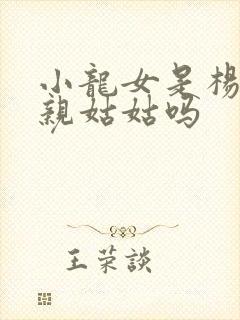 小龍女是楊
親姑姑吗
王荣談